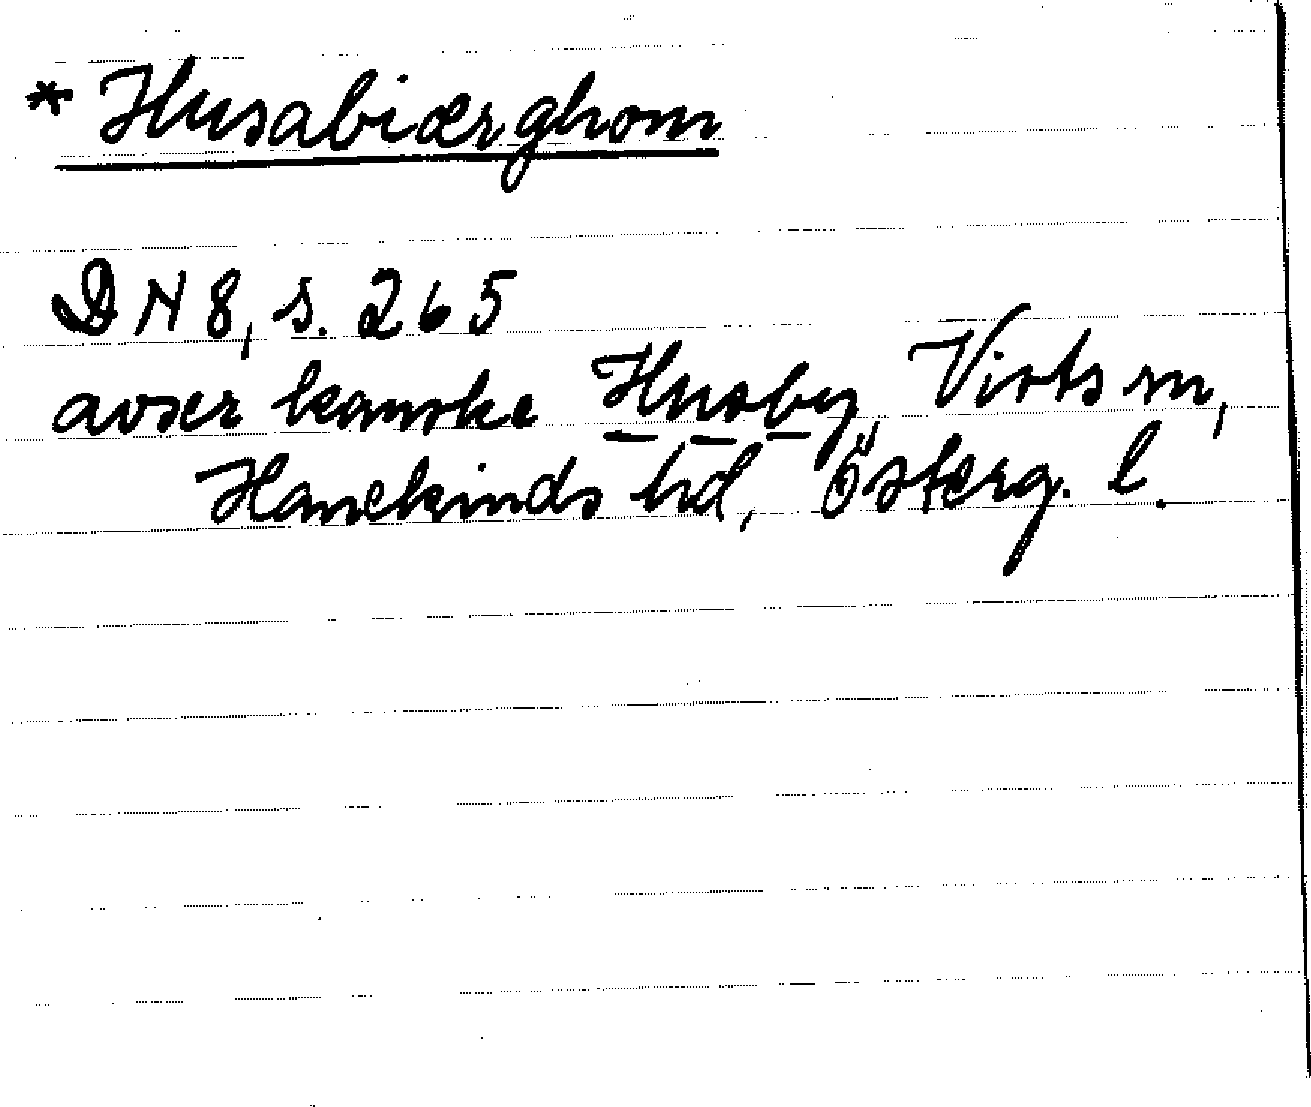 * Husabiærghom
DN 8, s. 265
avser kanske Husby, Vists sn,
Hanekinds hd, Österg. l.